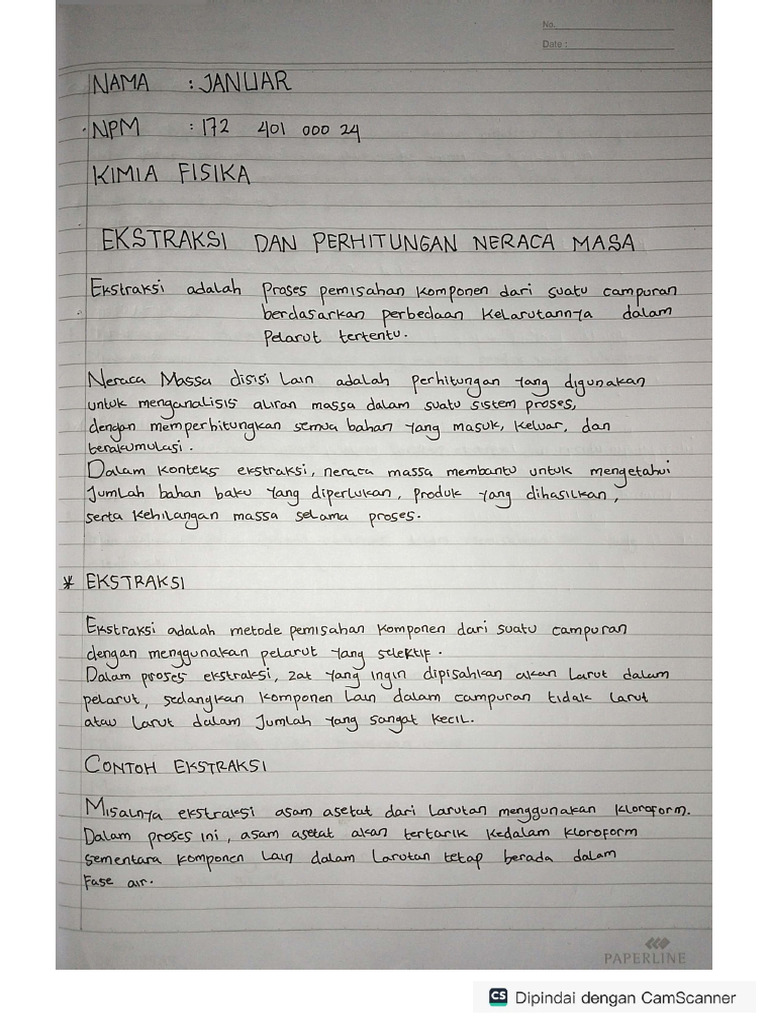 No.
Date :
NAMA : JANUAR
NPM : 172 401 000 24
KIMIA FISIKA
EKSTRAKSI DAN PERHITUNGAN NERACA MASA
Ekstraksi adalah Proses pemisahan komponen dari suatu campuran
berdasarkan perbedaan kelarutannya dalam
Pelarut tertentu.
Neraca Massa disisi Lain adalah perhitungan yang digunakan
untuk menganalisis aliran massa dalam suatu sistem proses,
dengan memperhitungkan semua bahan yang masuk, keluar, dan
berakumulasi.
Dalam konteks ekstraksi, neraca massa membantu untuk mengetahui
Jumlah bahan baku yang diperlukan, produk yang dihasilkan,
serta kehilangan massa selama proses.
* EKSTRAKSI
Ekstraksi adalah metode pemisahan komponen dari suatu campuran
dengan menggunakan pelarut yang selektif.
Dalam proses ekstraksi, zat yang ingin dipisahkan akan Larut dalam
pelarut, sedangkan komponen Lain dalam campuran tidak larut
atau Larut dalam Jumlah yang sangat kecil.
CONTOH EKSTRAKSI
Misalnya ekstraksi asam asetat dari larutan menggunakan kloroform.
Dalam proses ini, asam asetat akan tertarik kedalam kloroform
sementara komponen Lain dalam Larutan tetap berada dalam
Fase air.
PAPERLINE
CS Dipindai dengan CamScanner